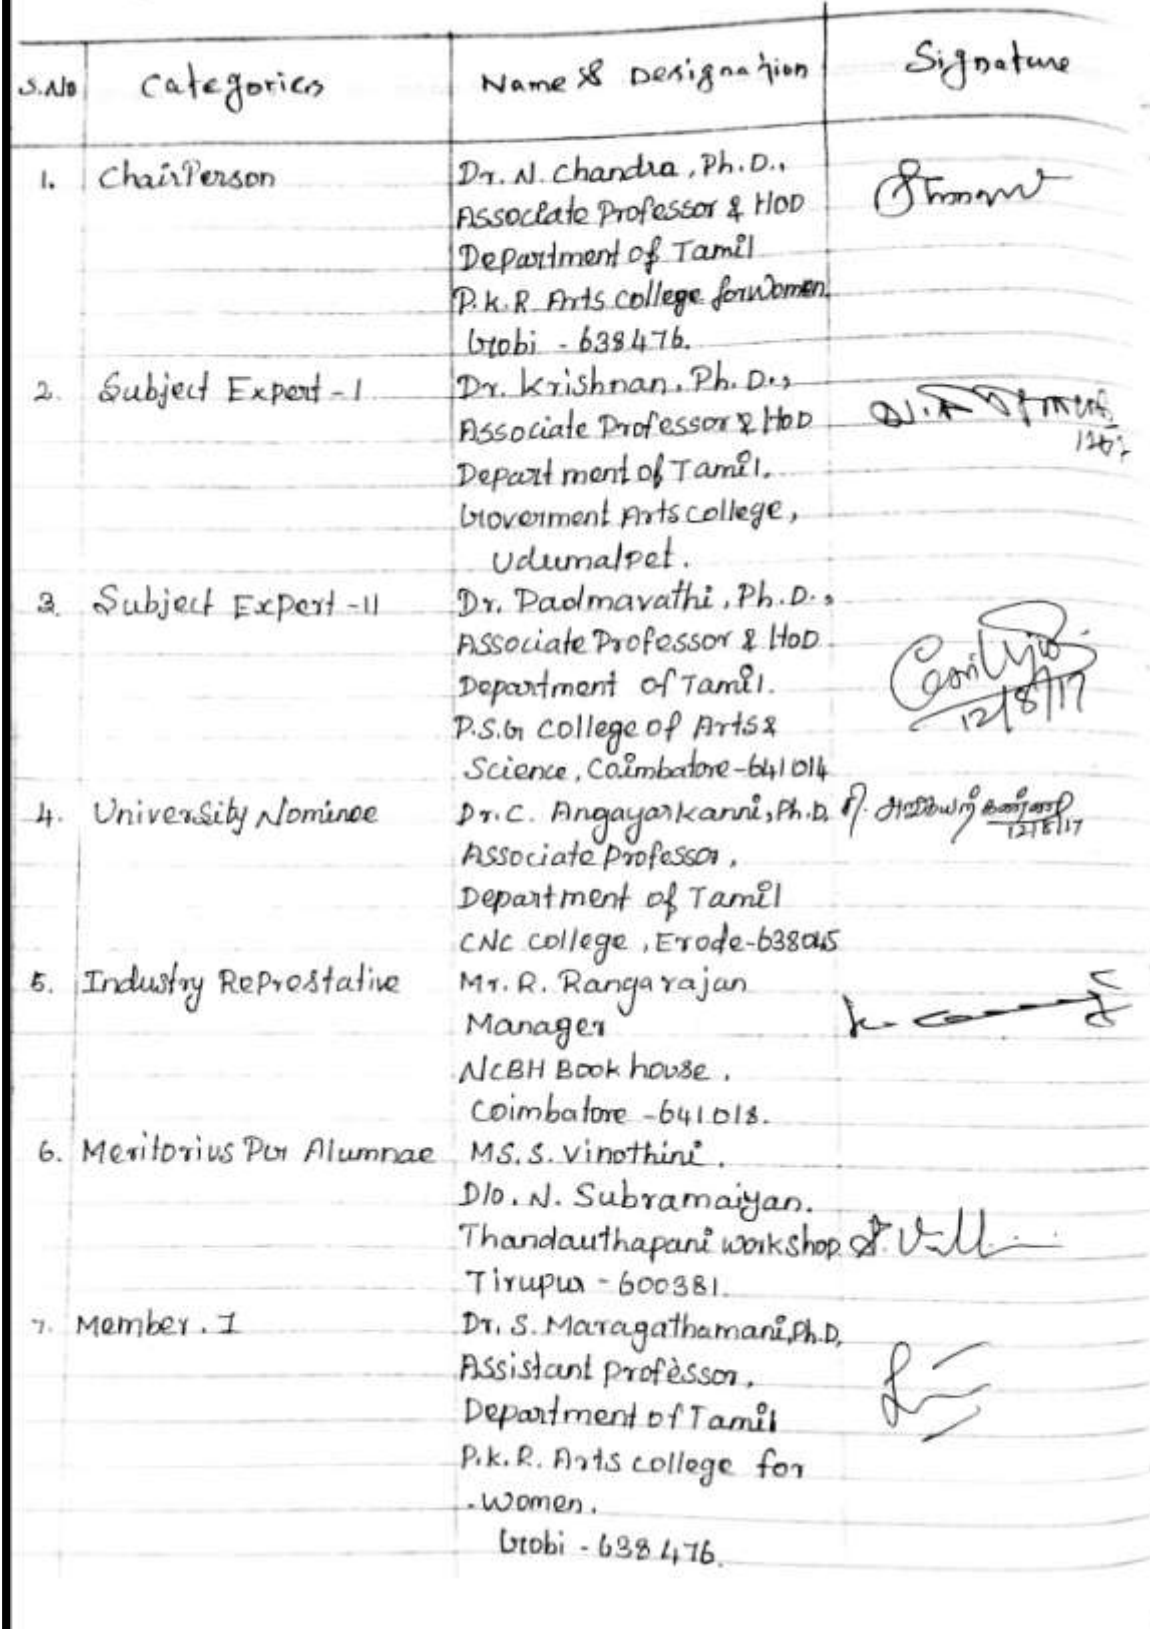 S.No Categories Name & Designation Signature
1. ChairPerson Dr. N. Chandra, Ph.D.,
Associate Professor & HOD
Department of Tamil
P.K.R Arts college for women,
Gobi - 638476.
2. Subject Expert - I Dr. Krishnan, Ph.D.,
Associate Professor & HOD
Department of Tamil.
Goverment Arts college,
Udumalpet.
3. Subject Expert - II Dr. Padmavathi, Ph.D.,
Associate Professor & HoD
Department of Tamil.
12/8/17
P.S.G college of Arts &
Science, Coimbatore-641014
4. University Nominee Dr. C. Angayarkanni, Ph.D,
12/8/17
Associate Professor,
Department of Tamil
CNC college, Erode-638045
5. Industry Reprostative Mr. R. Rangarajan
Manager
NCBH Book house,
Coimbatore - 641018.
6. Meritorius Pur Alumnae MS. S. Vinothini.
D/o. N. Subramaiyan.
Thandauthapani workshop
Tirupur - 600381.
7. Member. I Dr. S. Maragathamani, Ph.D,
Assistant Professor,
Department of Tamil
P.K.R. Arts college for
women.
Gobi - 638476.